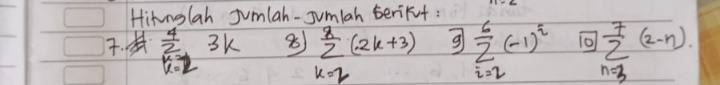 Hitunglah Jumlah-Jumlah berikut :
7. 4 Σ k=2 3k 8) 8 Σ k=2 (2k+3) 9) 6 Σ i=2 (-1)^i 10) 7 Σ n=3 (2-n).